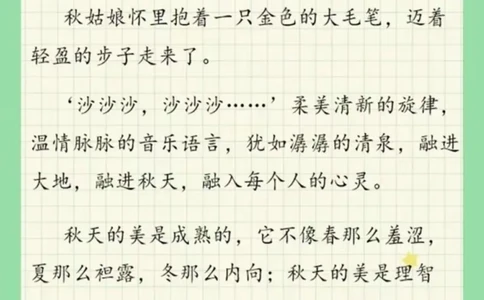 秋姑娘怀里抱着一只金色的大毛笔，迈着
轻盈的步子走来了。
‘沙沙沙，沙沙沙……’柔美清新的旋律，
温情脉脉的音乐语言，犹如潺潺的清泉，融进
大地，融进秋天，融入每个人的心灵。
秋天的美是成熟的，它不像春那么羞涩，
夏那么袒露，冬那么内向；秋天的美是理智